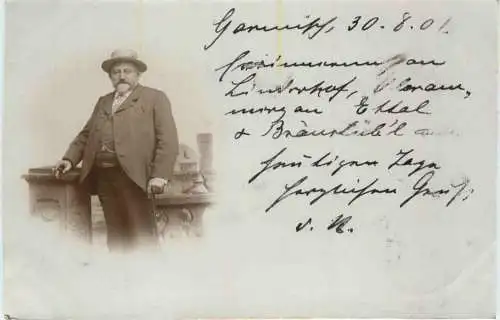 Garmisch, 30.8.01.
Erinnerung an
Linderhof, Oberam-
mergau Ettal
& Bräustüb'l am
heutigen Tage
herzlichen Gruß,